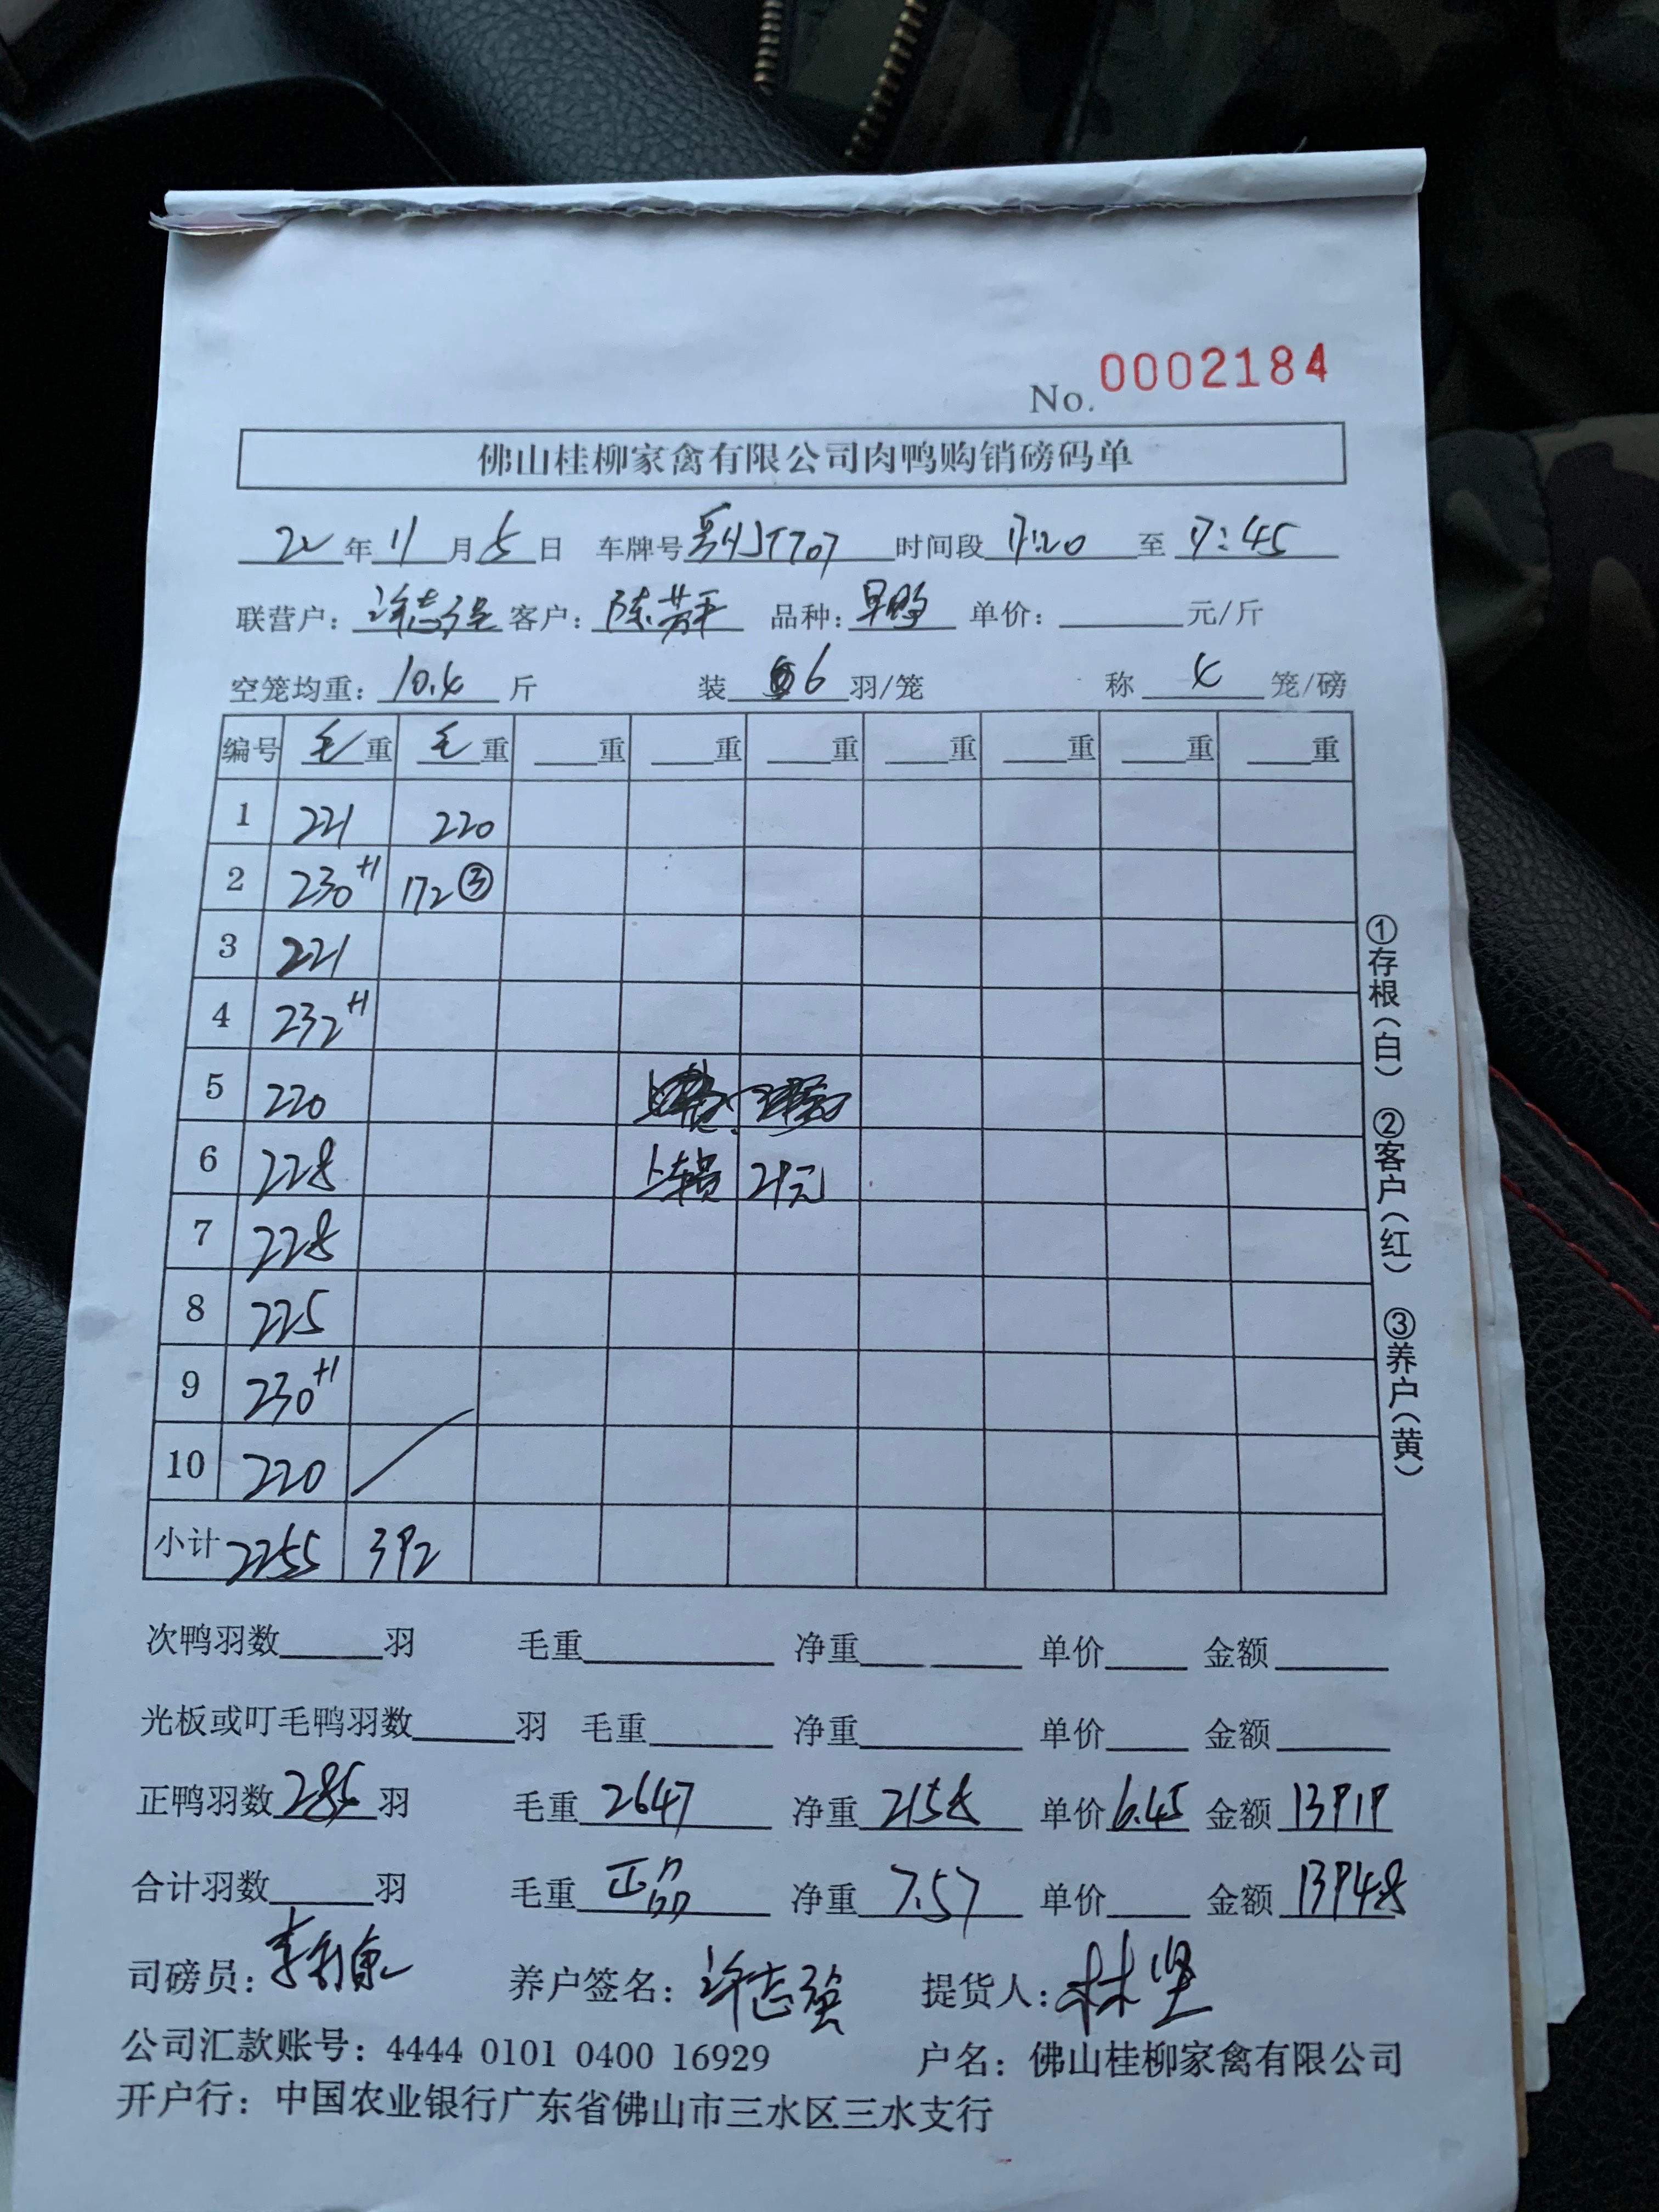 No. 0002184
佛山桂柳家禽有限公司肉鸭购销磅码单
22年11月5日 车牌号 J7707 时间段 17:20 至 17:45
联营户：许志强 客户：陈芳平 品种：早鸭 单价： 元/斤
空笼均重：10.4 斤 装 6 羽/笼 称 4 笼/磅
编号 毛重 毛重 重 重 重 重 重 重 重
1 221 220
2 230+1 172③
3 221
4 232+1
5 220
6 228 上车员 21元
7 228
8 225
9 230+1
10 220
小计 2255 392
①存根（白） ②客户（红） ③养户（黄）
次鸭羽数 羽 毛重 净重 单价 金额
光板或叮毛鸭羽数 羽 毛重 净重 单价 金额
正鸭羽数 285 羽 毛重 2647 净重 2158 单价 6.45 金额 13919
合计羽数 羽 毛重 正品 净重 7.57 单价 金额 13948
司磅员： 养户签名：许志强 提货人：林坚
公司汇款账号：4444 0101 0400 16929 户名：佛山桂柳家禽有限公司
开户行：中国农业银行广东省佛山市三水区三水支行